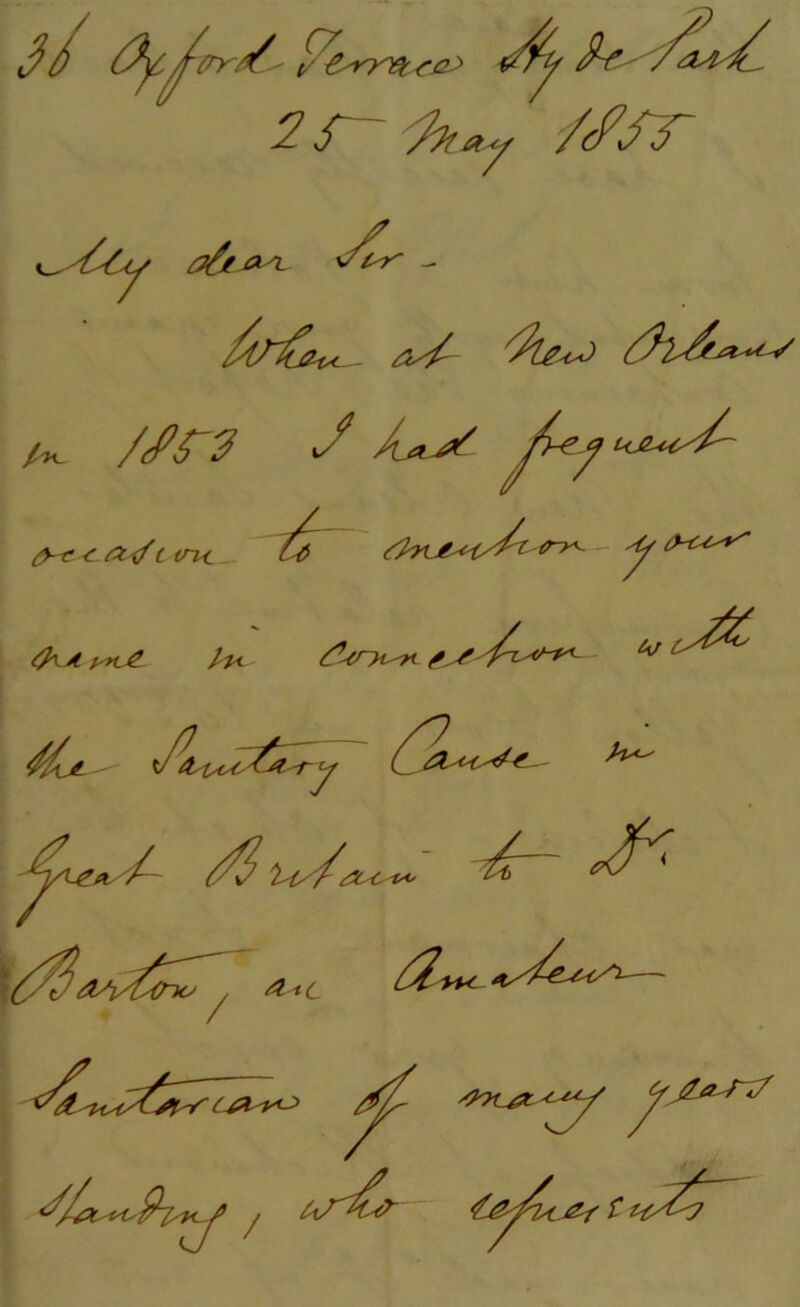 36 Oxford Terrace Hyde Park
25 May 1855
My dear Sir -
When at New Orleans
in 1853 I had frequent
occasion to mention your
name in connection with
the Sanitary Cause in
Great Britain to Dr
Barton, an Amateur
Sanitarian of many years
standing, who represents